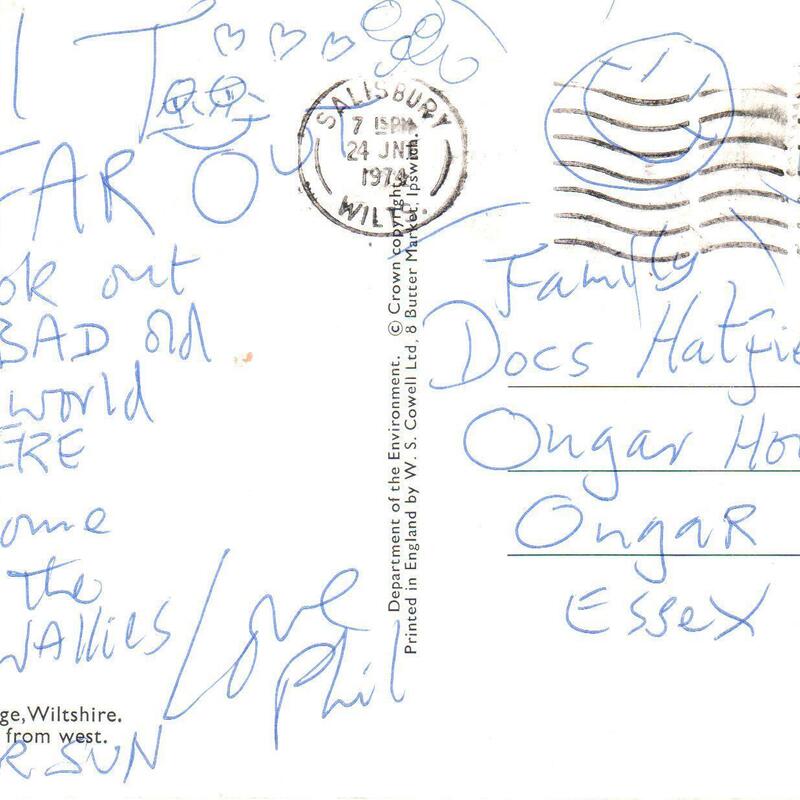 FAR OUT
ok out
BAD old
world
ERE
ome
the
WALLIES
Love
Phil
ge, Wiltshire.
from west.
R SUN
SALISBURY
7 15PM
24 JNE
1974
WILTS.
Department of the Environment. © Crown copyright
Printed in England by W. S. Cowell Ltd, 8 Butter Market, Ipswich.
Family
Docs Hatfie
Ongar Hou
OngaR
Essex